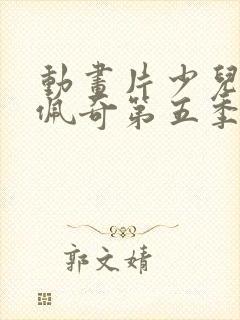 動畫片少兒
佩奇第五季
郭文婧